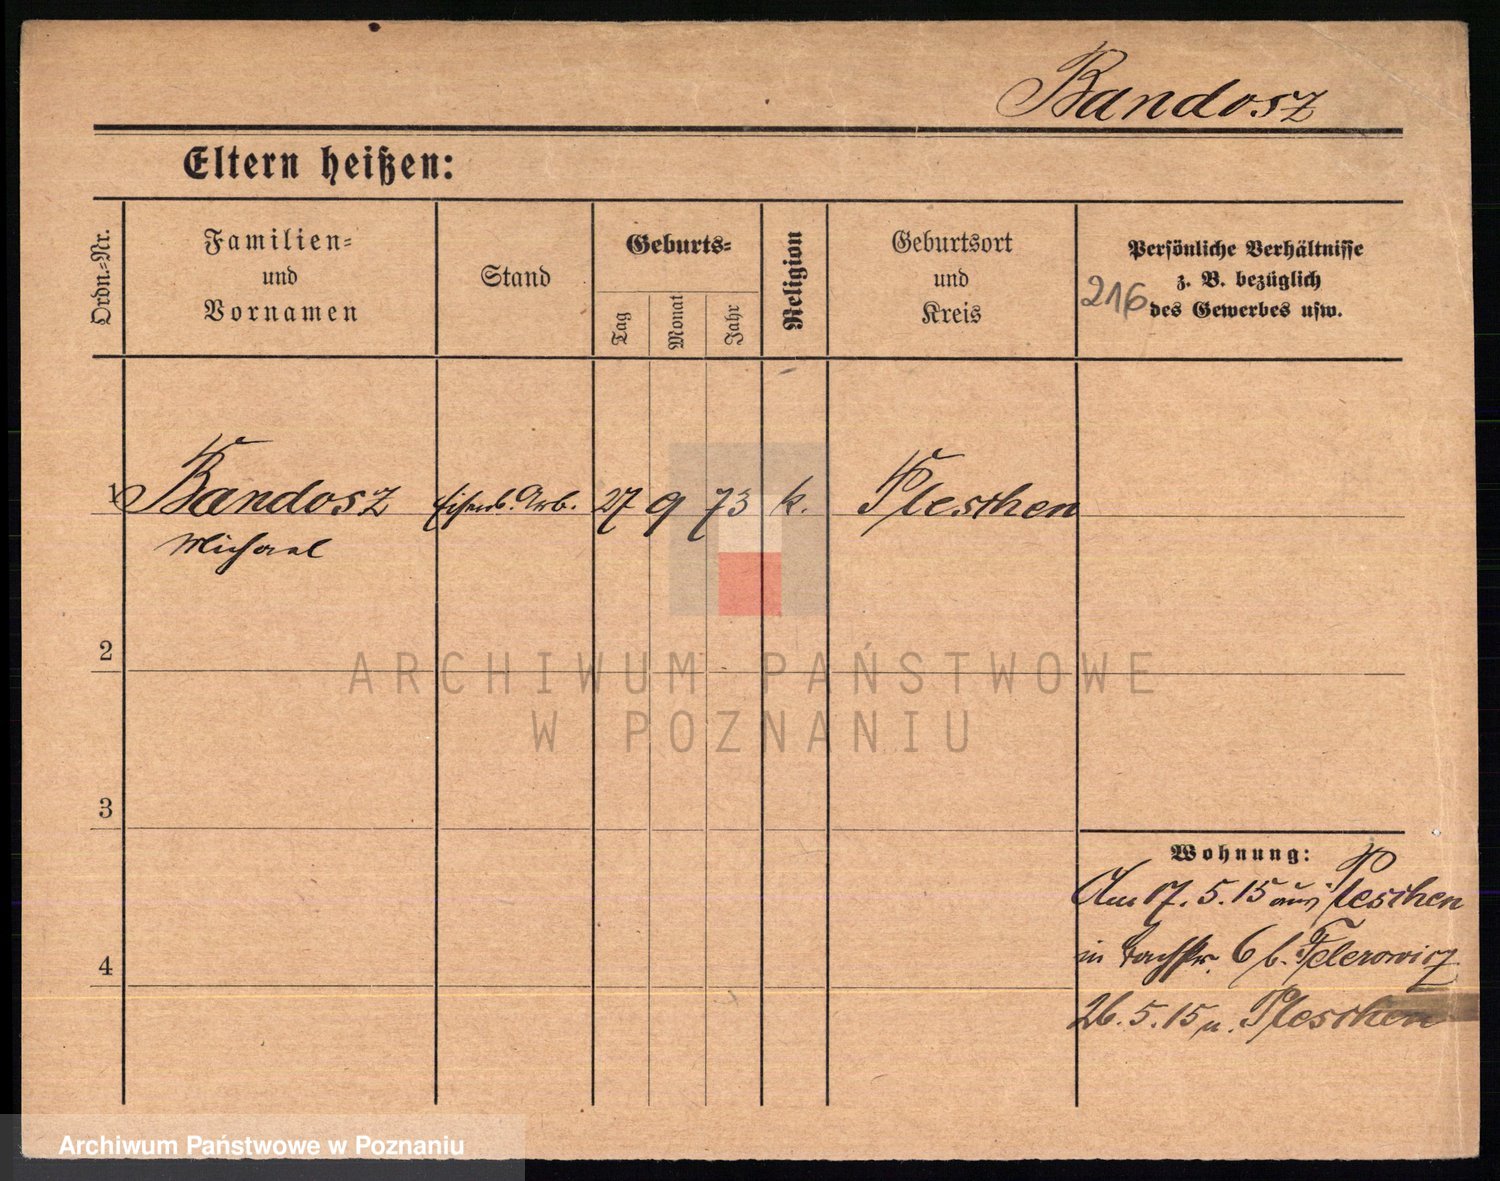 Bandosz
Eltern heißen:
Ordn.-Nr.
Familien-
und
Vornamen
Stand
Geburts-
Tag
Monat
Jahr
Religion
Geburtsort
und
Kreis
Persönliche Verhältnisse
z. B. bezüglich
des Gewerbes usw.
216
1 Bandosz Eisenb. Arb. 27 9 73 k. Pleschen
Michael
2
3
4
Wohnung:
Am 17. 5. 15 aus Pleschen
in 6 b.
26. 5. 15 n. Pleschen
ARCHIWUM PAŃSTWOWE
W POZNANIU
Archiwum Państwowe w Poznaniu